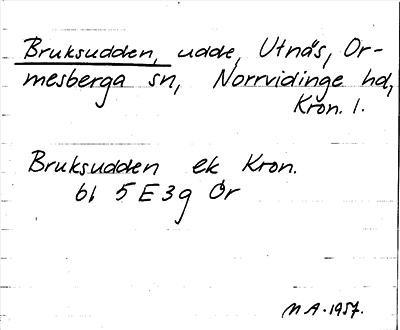 Bruksudden, udde, Utnäs, Or-
mesberga sn, Norrvidinge hd,
Kron. l.
Bruksudden ek Kron.
bl 5 E 3g Ör
M A. 1957.